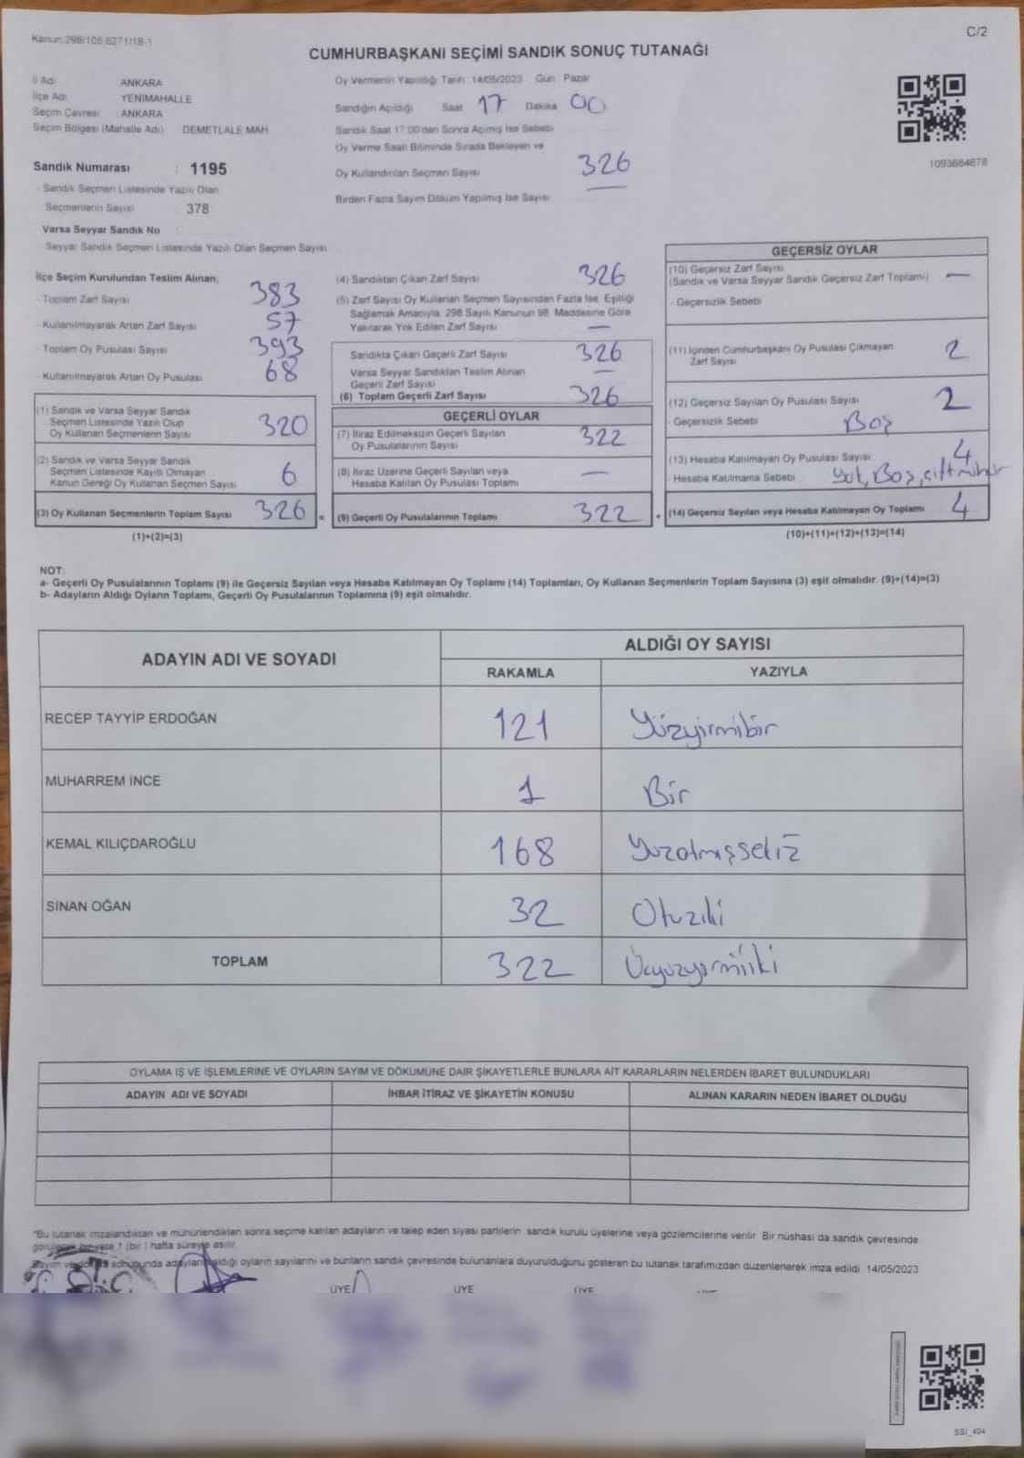 Kanun:298/105 6271/18-1
C/2
CUMHURBAŞKANI SEÇİMİ SANDIK SONUÇ TUTANAĞI
İl Adı ANKARA
İlçe Adı YENİMAHALLE
Seçim Çevresi : ANKARA
Seçim Bölgesi (Mahalle Adı) DEMETLALE MAH
Sandık Numarası : 1195
- Sandık Seçmen Listesinde Yazılı Olan
Seçmenlerin Sayısı 378
Varsa Seyyar Sandık No
Seyyar Sandık Seçmen Listesinde Yazılı Olan Seçmen Sayısı
Oy Vermenin Yapıldığı Tarih: 14/05/2023 Gün: Pazar
Sandığın Açıldığı Saat 17 Dakika 00
Sandık Saat 17:00'den Sonra Açılmış İse Sebebi
Oy Verme Saati Bitiminde Sırada Bekleyen ve
Oy Kullandırılan Seçmen Sayısı 326
Birden Fazla Sayım Döküm Yapılmış İse Sayısı
1093684678
İlçe Seçim Kurulundan Teslim Alınan;
- Toplam Zarf Sayısı 383
- Kullanılmayarak Artan Zarf Sayısı 57
- Toplam Oy Pusulası Sayısı 393
- Kullanılmayarak Artan Oy Pusulası 68
(1) Sandık ve Varsa Seyyar Sandık
Seçmen Listesinde Yazılı Olup
Oy Kullanan Seçmenlerin Sayısı 320
(2) Sandık ve Varsa Seyyar Sandık
Seçmen Listesinde Kayıtlı Olmayan
Kanun Gereği Oy Kullanan Seçmen Sayısı 6
(3) Oy Kullanan Seçmenlerin Toplam Sayısı 326 =
(1)+(2)=(3)
(4) Sandıktan Çıkan Zarf Sayısı 326
(5) Zarf Sayısı Oy Kullanan Seçmen Sayısından Fazla İse, Eşitliği
Sağlamak Amacıyla, 298 Sayılı Kanunun 98. Maddesine Göre
Yakılarak Yok Edilen Zarf Sayısı —
Sandıkta Çıkan Geçerli Zarf Sayısı 326
Varsa Seyyar Sandıktan Teslim Alınan
Geçerli Zarf Sayısı
(6) Toplam Geçerli Zarf Sayısı 326
GEÇERLİ OYLAR
(7) İtiraz Edilmeksizin Geçerli Sayılan
Oy Pusulalarının Sayısı 322
(8) İtiraz Üzerine Geçerli Sayılan veya
Hesaba Katılan Oy Pusulası Toplamı —
(9) Geçerli Oy Pusulalarının Toplamı 322 +
GEÇERSİZ OYLAR
(10) Geçersiz Zarf Sayısı
(Sandık ve Varsa Seyyar Sandık Geçersiz Zarf Toplamı) —
- Geçersizlik Sebebi
(11) İçinden Cumhurbaşkanı Oy Pusulası Çıkmayan
Zarf Sayısı 2
(12) Geçersiz Sayılan Oy Pusulası Sayısı 2
- Geçersizlik Sebebi Boş
(13) Hesaba Katılmayan Oy Pusulası Sayısı 4
- Hesaba Katılmama Sebebi Boş, çift mühür
(14) Geçersiz Sayılan veya Hesaba Katılmayan Oy Toplamı 4
(10)+(11)+(12)+(13)=(14)
NOT:
a- Geçerli Oy Pusulalarının Toplamı (9) ile Geçersiz Sayılan veya Hesaba Katılmayan Oy Toplamı (14) Toplamları, Oy Kullanan Seçmenlerin Toplam Sayısına (3) eşit olmalıdır. (9)+(14)=(3)
b- Adayların Aldığı Oyların Toplamı, Geçerli Oy Pusulalarının Toplamına (9) eşit olmalıdır.
ADAYIN ADI VE SOYADI
ALDIĞI OY SAYISI
RAKAMLA YAZIYLA
RECEP TAYYİP ERDOĞAN 121 Yüzyirmibir
MUHARREM İNCE 1 Bir
KEMAL KILIÇDAROĞLU 168 Yüzatmışsekiz
SİNAN OĞAN 32 Otuziki
TOPLAM 322 Üçyüzyirmiiki
OYLAMA İŞ VE İŞLEMLERİNE VE OYLARIN SAYIM VE DÖKÜMÜNE DAİR ŞİKAYETLERLE BUNLARA AİT KARARLARIN NELERDEN İBARET BULUNDUKLARI
ADAYIN ADI VE SOYADI İHBAR İTİRAZ VE ŞİKAYETİN KONUSU ALINAN KARARIN NEDEN İBARET OLDUĞU
"Bu tutanak imzalandıktan ve mühürlendikten sonra seçime katılan adayların ve talep eden siyasi partilerin sandık kurulu üyelerine veya gözlemcilerine verilir. Bir nüshası da sandık çevresinde
1 (bir) hafta süreyle asılır.
adayların aldığı oyların sayılarını ve bunların sandık çevresinde bulunanlara duyurulduğunu gösteren bu tutanak tarafımızdan düzenlenerek imza edildi. 14/05/2023
ÜYE ÜYE ÜYE